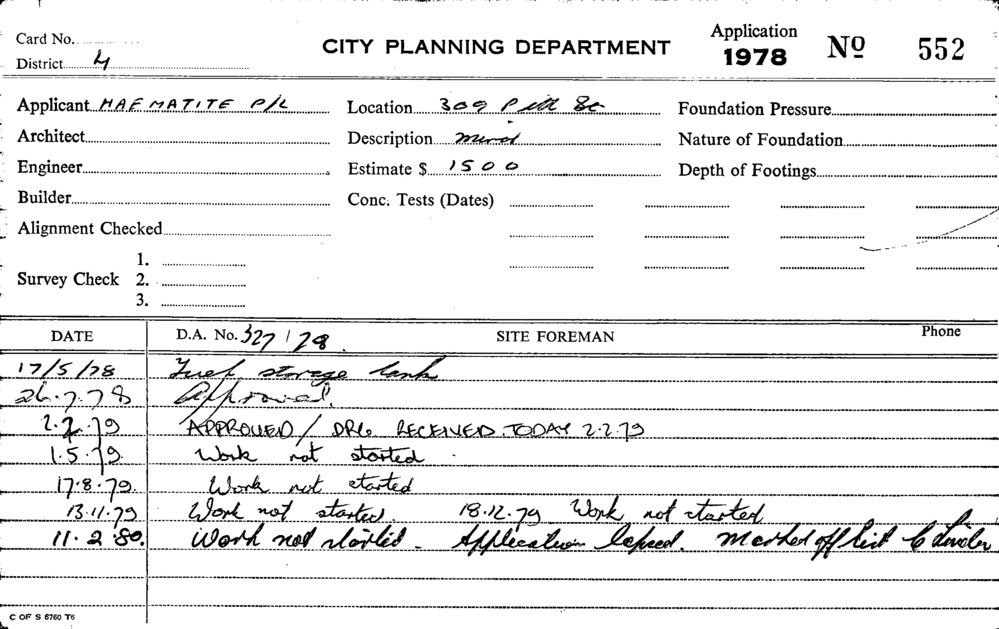 Card No.
District 4
CITY PLANNING DEPARTMENT
Application
1978 No 552
Applicant HAEMATITE P/L
Location 309 Pitt St
Foundation Pressure
Architect
Description
Nature of Foundation
Engineer
Estimate $ 1500
Depth of Footings
Builder
Conc. Tests (Dates)
Alignment Checked
Survey Check
1.
2.
3.
DATE D.A. No. 327/78 SITE FOREMAN Phone
17/5/78 Fuel storage tank
26.7.78 Approval.
2.2.79 APPROVED / DRG RECEIVED TODAY 2.2.79
1.5.79. Work not started
17.8.79. Work not started
13.11.79 Work not started. 18.12.79 Work not started
11.2.80. Work not started. Application lapsed. Marked off list
C OF S 6760 T6